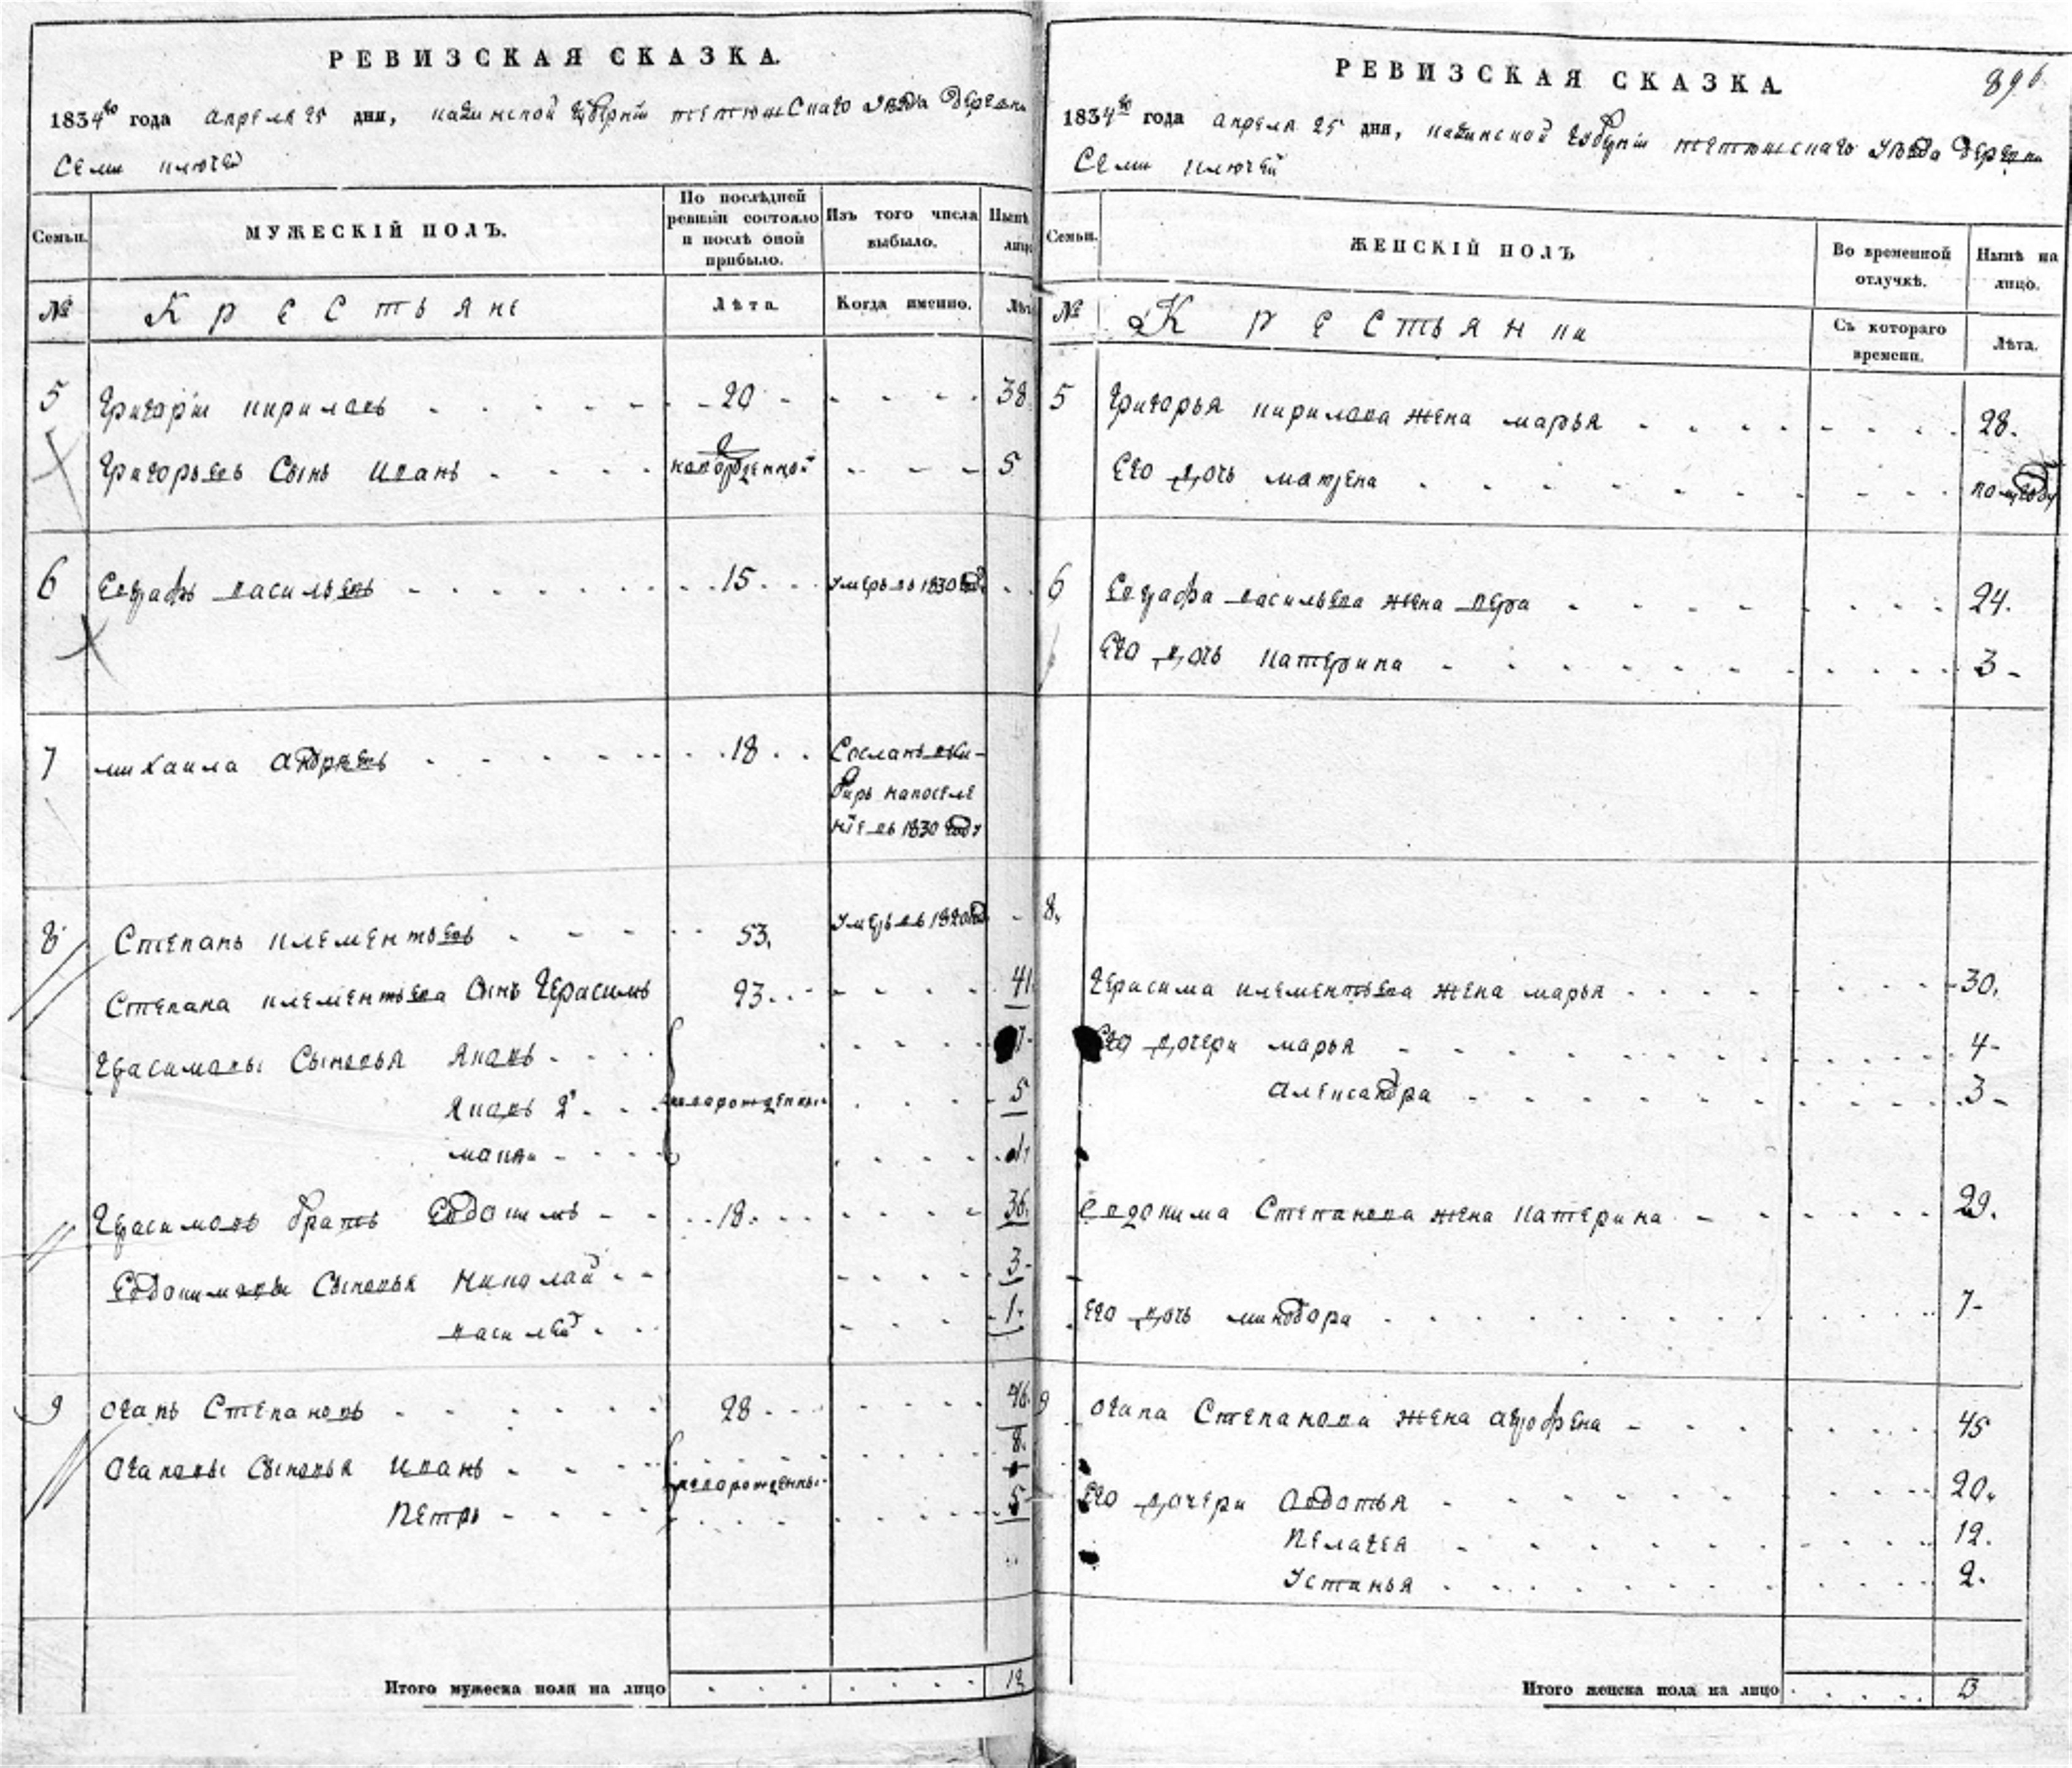 РЕВИЗСКАЯ СКАЗКА.
1834го года апреля 25 дня, казинской губернiи тетюшскаго уѣзда деревни
Семи ключей
Семьи. МУЖЕСКІЙ ПОЛЪ. По послѣдней ревизіи состояло и послѣ оной прибыло. Изъ того числа выбыло. Нынѣ лицо
№ Крестьяне Лѣта. Когда именно. Лѣт
5 Григорiй кириловъ 20 38
Григорьевъ Сынъ иванъ новорожденной 5
6 Евграфъ васильевъ 15 умеръ въ 1830 год
7 михаила андреевъ 18 Сосланъ всибирь напоселенiе въ 1830 году
8 Степанъ клементьевъ 53. умеръ въ 1820 год
Степана клементьева Сынъ Герасимъ 23 41
Герасимовы Сыновья Яковъ 7
Яковъ 2й новорожденны 5
1
Герасимовъ братъ Евдокимъ 18 36
Евдокимовы Сыновья николай 3
василей 1
9 Осипъ Степановъ 28 46
Сыновья иванъ новорожденны 8
Петръ 5
Итого мужеска пола на лицо 12
РЕВИЗСКАЯ СКАЗКА.
1834го года апреля 25 дня, казинской губернiи тетюшскаго уѣзда деревни
Семи ключей
Семьи. ЖЕНСКІЙ ПОЛЪ Во временной отлучкѣ. Нынѣ на лицо.
№ Крестьянки Съ котораго времени. Лѣта.
5 Григорья кирилова жена марья 28.
Его дочь матрена полугоду
6 Евграфа васильева жена вера 24.
Его дочь катерина 3
8.
Герасима клементьева жена марья 30.
Его дочери марья 4
александра 3
Евдокима Степанова жена катерина 29.
Его дочь минодора 7
9 Степанова жена аграфена 45
Его дочери авдотья 20.
Пелагея 12.
Устинья 2.
Итого женска пола на лицо 13